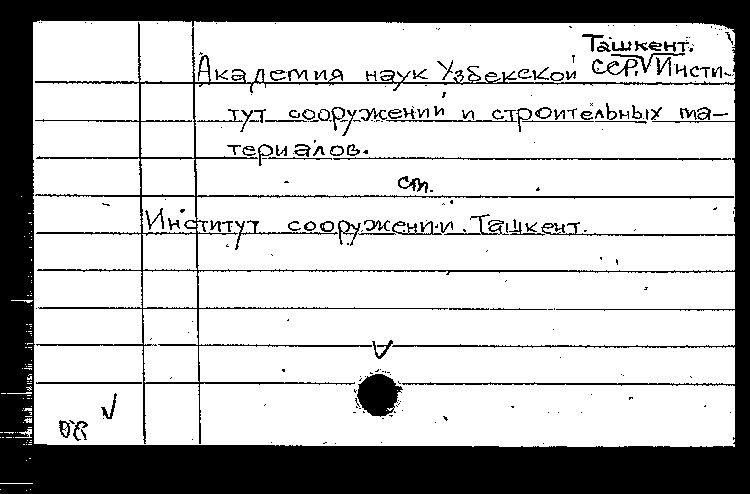 Ташкент.
Академия наук Узбекской ССР. Инсти-
тут сооружений и строительных ма-
териалов.
ст.
Институт сооружений. Ташкент.